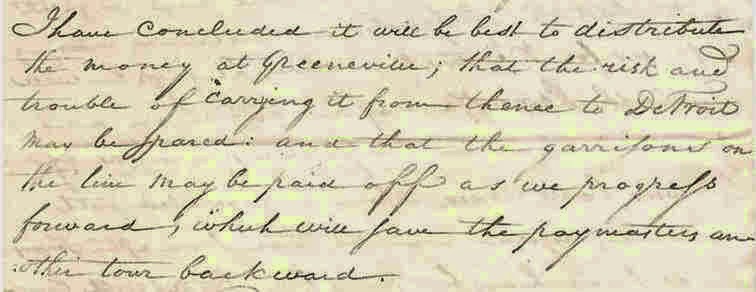 I have concluded it will be best to distribute
the money at Greeneville; that the risk and
trouble of carrying it from thence to Detroit
may be spared: and that the garrisons on
the line may be paid off as we progress
forward, which will save the paymasters an
other tour backward.